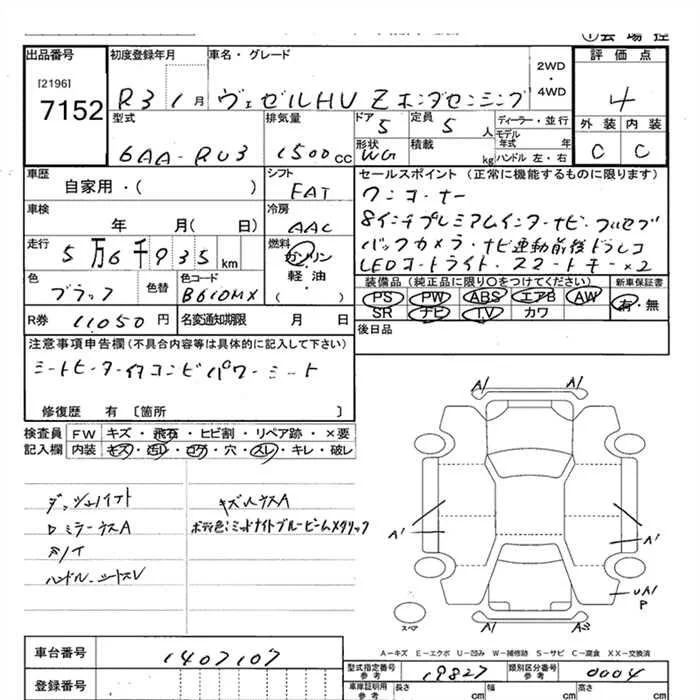 出品番号
[2196]
7152
初度登録年月
R3 1月
車名・グレード
ヴェゼルHV Zホンダセンシング
2WD
・
4WD
評価点
4
外装 内装
C C
型式
6AA-RU3
排気量
1500cc
ドア
5
定員
5人
形状
WG
積載
kg
ディーラー・並行
モデル
年式 年
ハンドル 左・右
車歴
自家用・( )
シフト
FAT
車検
年 月( 日)
冷房
AAC
走行
5万6千935km
燃料
ガソリン
軽油
・
( )
色
ブラック
色替
色コード
B610MX
R券
11050円
名変通知期限 月 日
セールスポイント (正常に機能するものに限ります)
ワンオーナー
8インチプレミアムインターナビ・フルセグ
バックカメラ・ナビ連動前後ドラレコ
LEDオートライト・スマートキー×2
装備品(純正品に限り○をつけてください)
PS PW ABS エアB AW
SR ナビ TV カワ
新車保証書
有・無
後日品
注意事項申告欄(不具合内容等は具体的に記入して下さい)
シートヒーター付コンビパワーシート
修復歴 有 〔箇所 〕
検査員
記入欄
FW キズ・飛石・ヒビ割・リペア跡・×要
内装 キズ・汚レ・コゲ・穴・スレ・キレ・破レ
ハンドル、シートスレ
キズルースA
ボディ色:ミッドナイトブルービームメタリック
A1 A1
A1 A1
UA1
P
A1 A3
スペア
A-キズ E-エクボ U-凹み W-補修跡 S-サビ C-腐食 XX-交換済
車台番号
1407107
登録番号
型式指定番号
参考
19827
類別区分番号
参考
0004
車庫証明用
参考
長さ
cm
幅
cm
高さ
cm